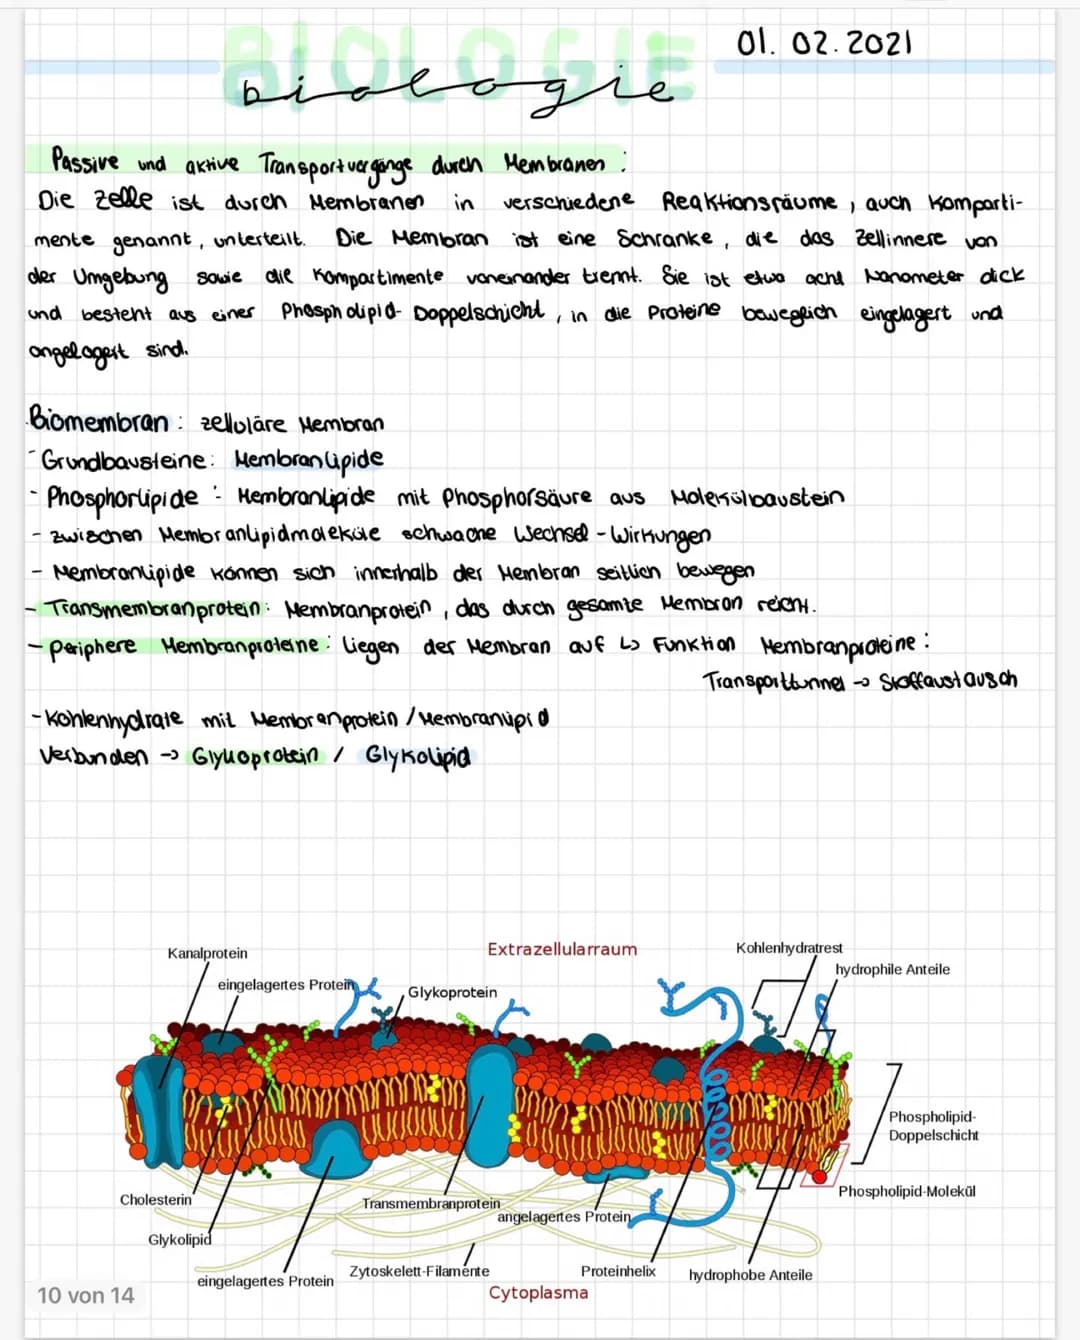 BIOLOGIE
biologie
01. 02. 2021
Passive und aktive Transportvorgänge durch Membranen :
Die Zelle ist durch Membranen in verschiedene Reaktionsräume , auch Komparti-
mente genannt , unterteilt. Die Membran ist eine Schranke , die das Zellinnere von
der Umgebung sowie die Kompartimente voneinander trennt. Sie ist etwa acht Nanometer dick
und besteht aus einer Phospholipid- Doppelschicht , in die Proteine beweglich eingelagert und
angelagert sind.
Biomembran : zelluläre Membran
- Grundbausteine: Membranlipide
- Phosphorlipide : Membranlipide mit Phosphorsäure aus Molekülbaustein
- zwischen Membranlipidmoleküle schwache Wechsel - Wirkungen
- Membranlipide können sich innerhalb der Membran seitlich bewegen
- Transmembranprotein: Membranprotein , das durch gesamte Membran reicht.
- periphere Membranproteine: liegen der Membran auf ↳ Funktion Membranproteine :
Transporttunnel → Stoffaustausch
- Kohlenhydrate mit Membranprotein / Membranlipid
Verbunden → Glykoprotein / Glykolipid
Extrazellularraum
Kohlenhydratrest
Kanalprotein
hydrophile Anteile
eingelagertes Protein
Glykoprotein
Phospholipid-
Doppelschicht
Phospholipid-Molekül
Cholesterin
Transmembranprotein
angelagertes Protein
Glykolipid
eingelagertes Protein
Zytoskelett-Filamente
Proteinhelix
hydrophobe Anteile
Cytoplasma
10 von 14